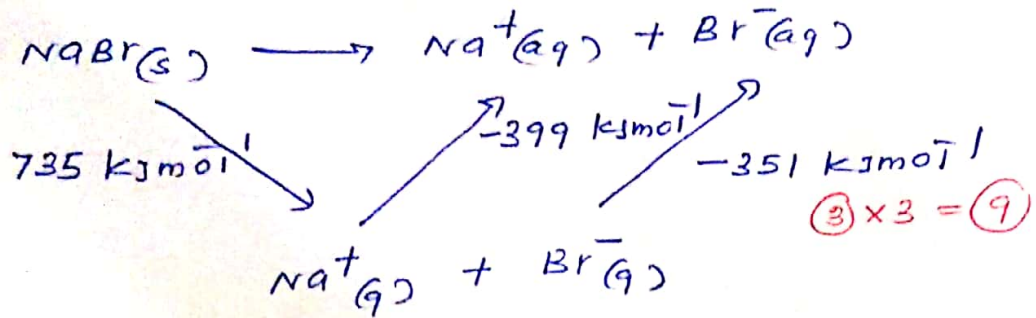 NaBr(s) → Na⁺(aq) + Br⁻(aq)
735 kJmol⁻¹
-399 kJmol⁻¹
-351 kJmol⁻¹
③ × 3 = ⑨
Na⁺(g) + Br⁻(g)